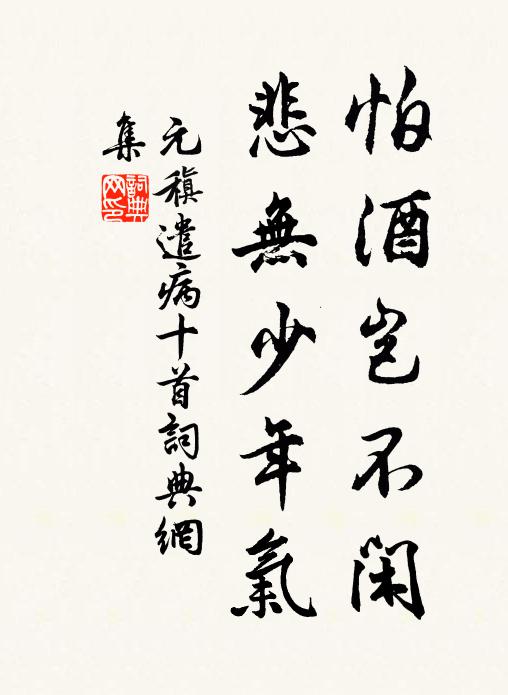 怕酒豈不閑
悲無少年氣
元稹遣病十首詞典網
集
詞典
网印